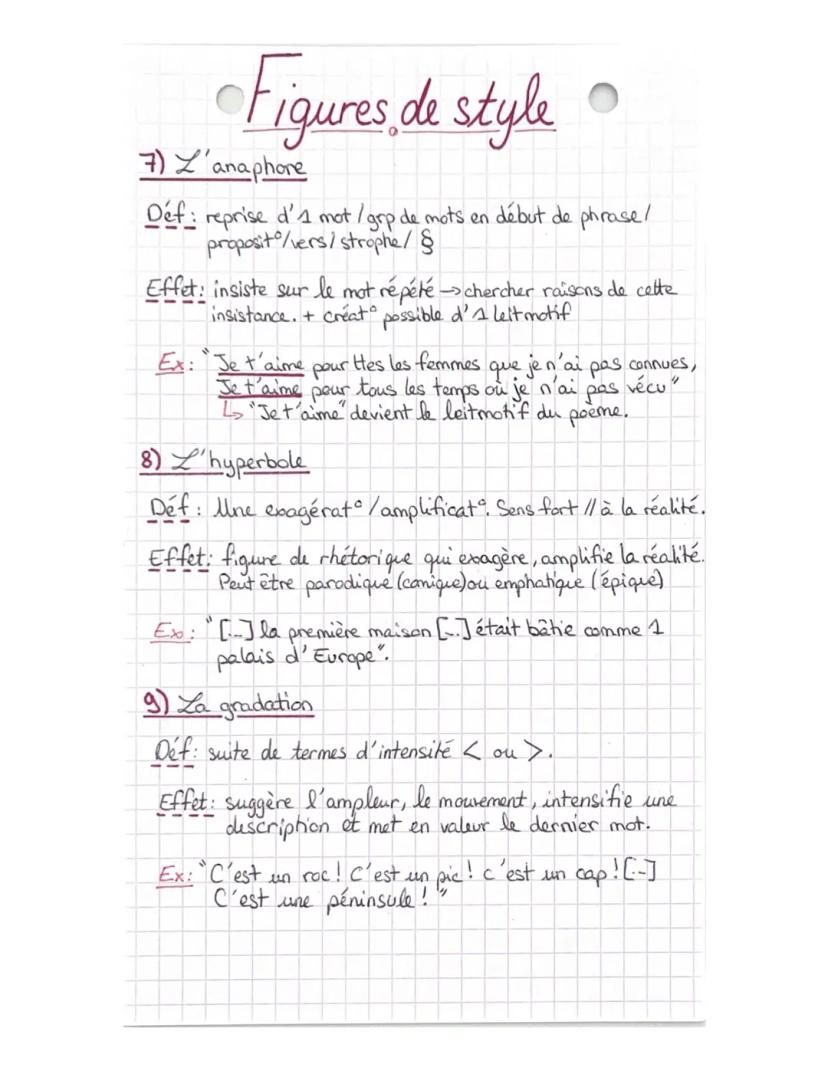 Figures de style
7) L'anaphore
Déf : reprise d'1 mot / grp de mots en début de phrase /
proposit°/vers/ strophe/ §
Effet: insiste sur le mot répété → chercher raisons de cette
insistance. + créat° possible d'1 leitmotif
Ex : "Je t'aime pour ttes les femmes que je n'ai pas connues,
Je t'aime pour tous les temps où je n'ai pas vécu"
↳ "Je t'aime" devient le leitmotif du poème.
8) L'hyperbole
Déf : Une exagérat° /amplificat°. Sens fort // à la réalité.
Effet: figure de rhétorique qui exagère, amplifie la réalité.
Peut être parodique (comique) ou emphatique (épique)
Ex : "[...] la première maison [...] était bâtie comme 1
palais d'Europe".
9) La gradation
Déf : suite de termes d'intensité < ou >.
Effet : suggère l'ampleur, le mouvement, intensifie une
description et met en valeur le dernier mot.
Ex: "C'est un roc ! C'est un pic ! c'est un cap ! [...]
C'est une péninsule ! "